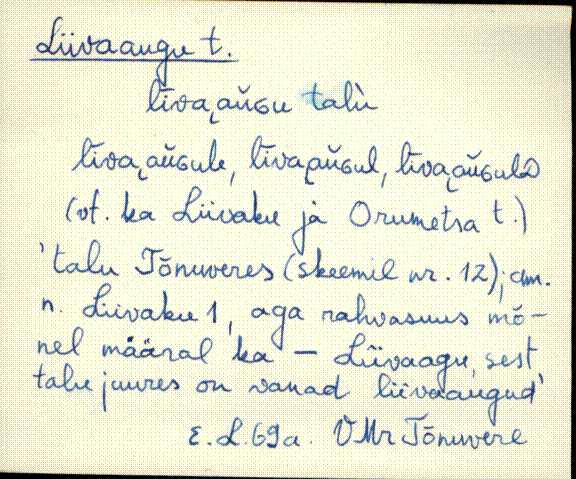 Liivaaugu t.
līva͔ǭŭɢu talù
līva͔aŭɢule, līva͔aŭɢul, līva͔aŭɢulᴅ
(vt. ka Liivaku ja Orumetsa t.)
'talu Tõnuveres (skeemil nr. 12); am.
n. Liivaku 1, aga rahvasuus mõ-
nel määral ka – Liivaagu, sest
talu juures on vanad liivaaugud'
E. L. 69a. VMr Tõnuvere